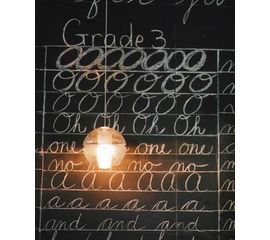 Grade 3
OOOOOOO
O O O O O O
O O O O O O
Oh Oh Oh Oh
one one one
no no no
a a a a a a
a a a a a a
and and and